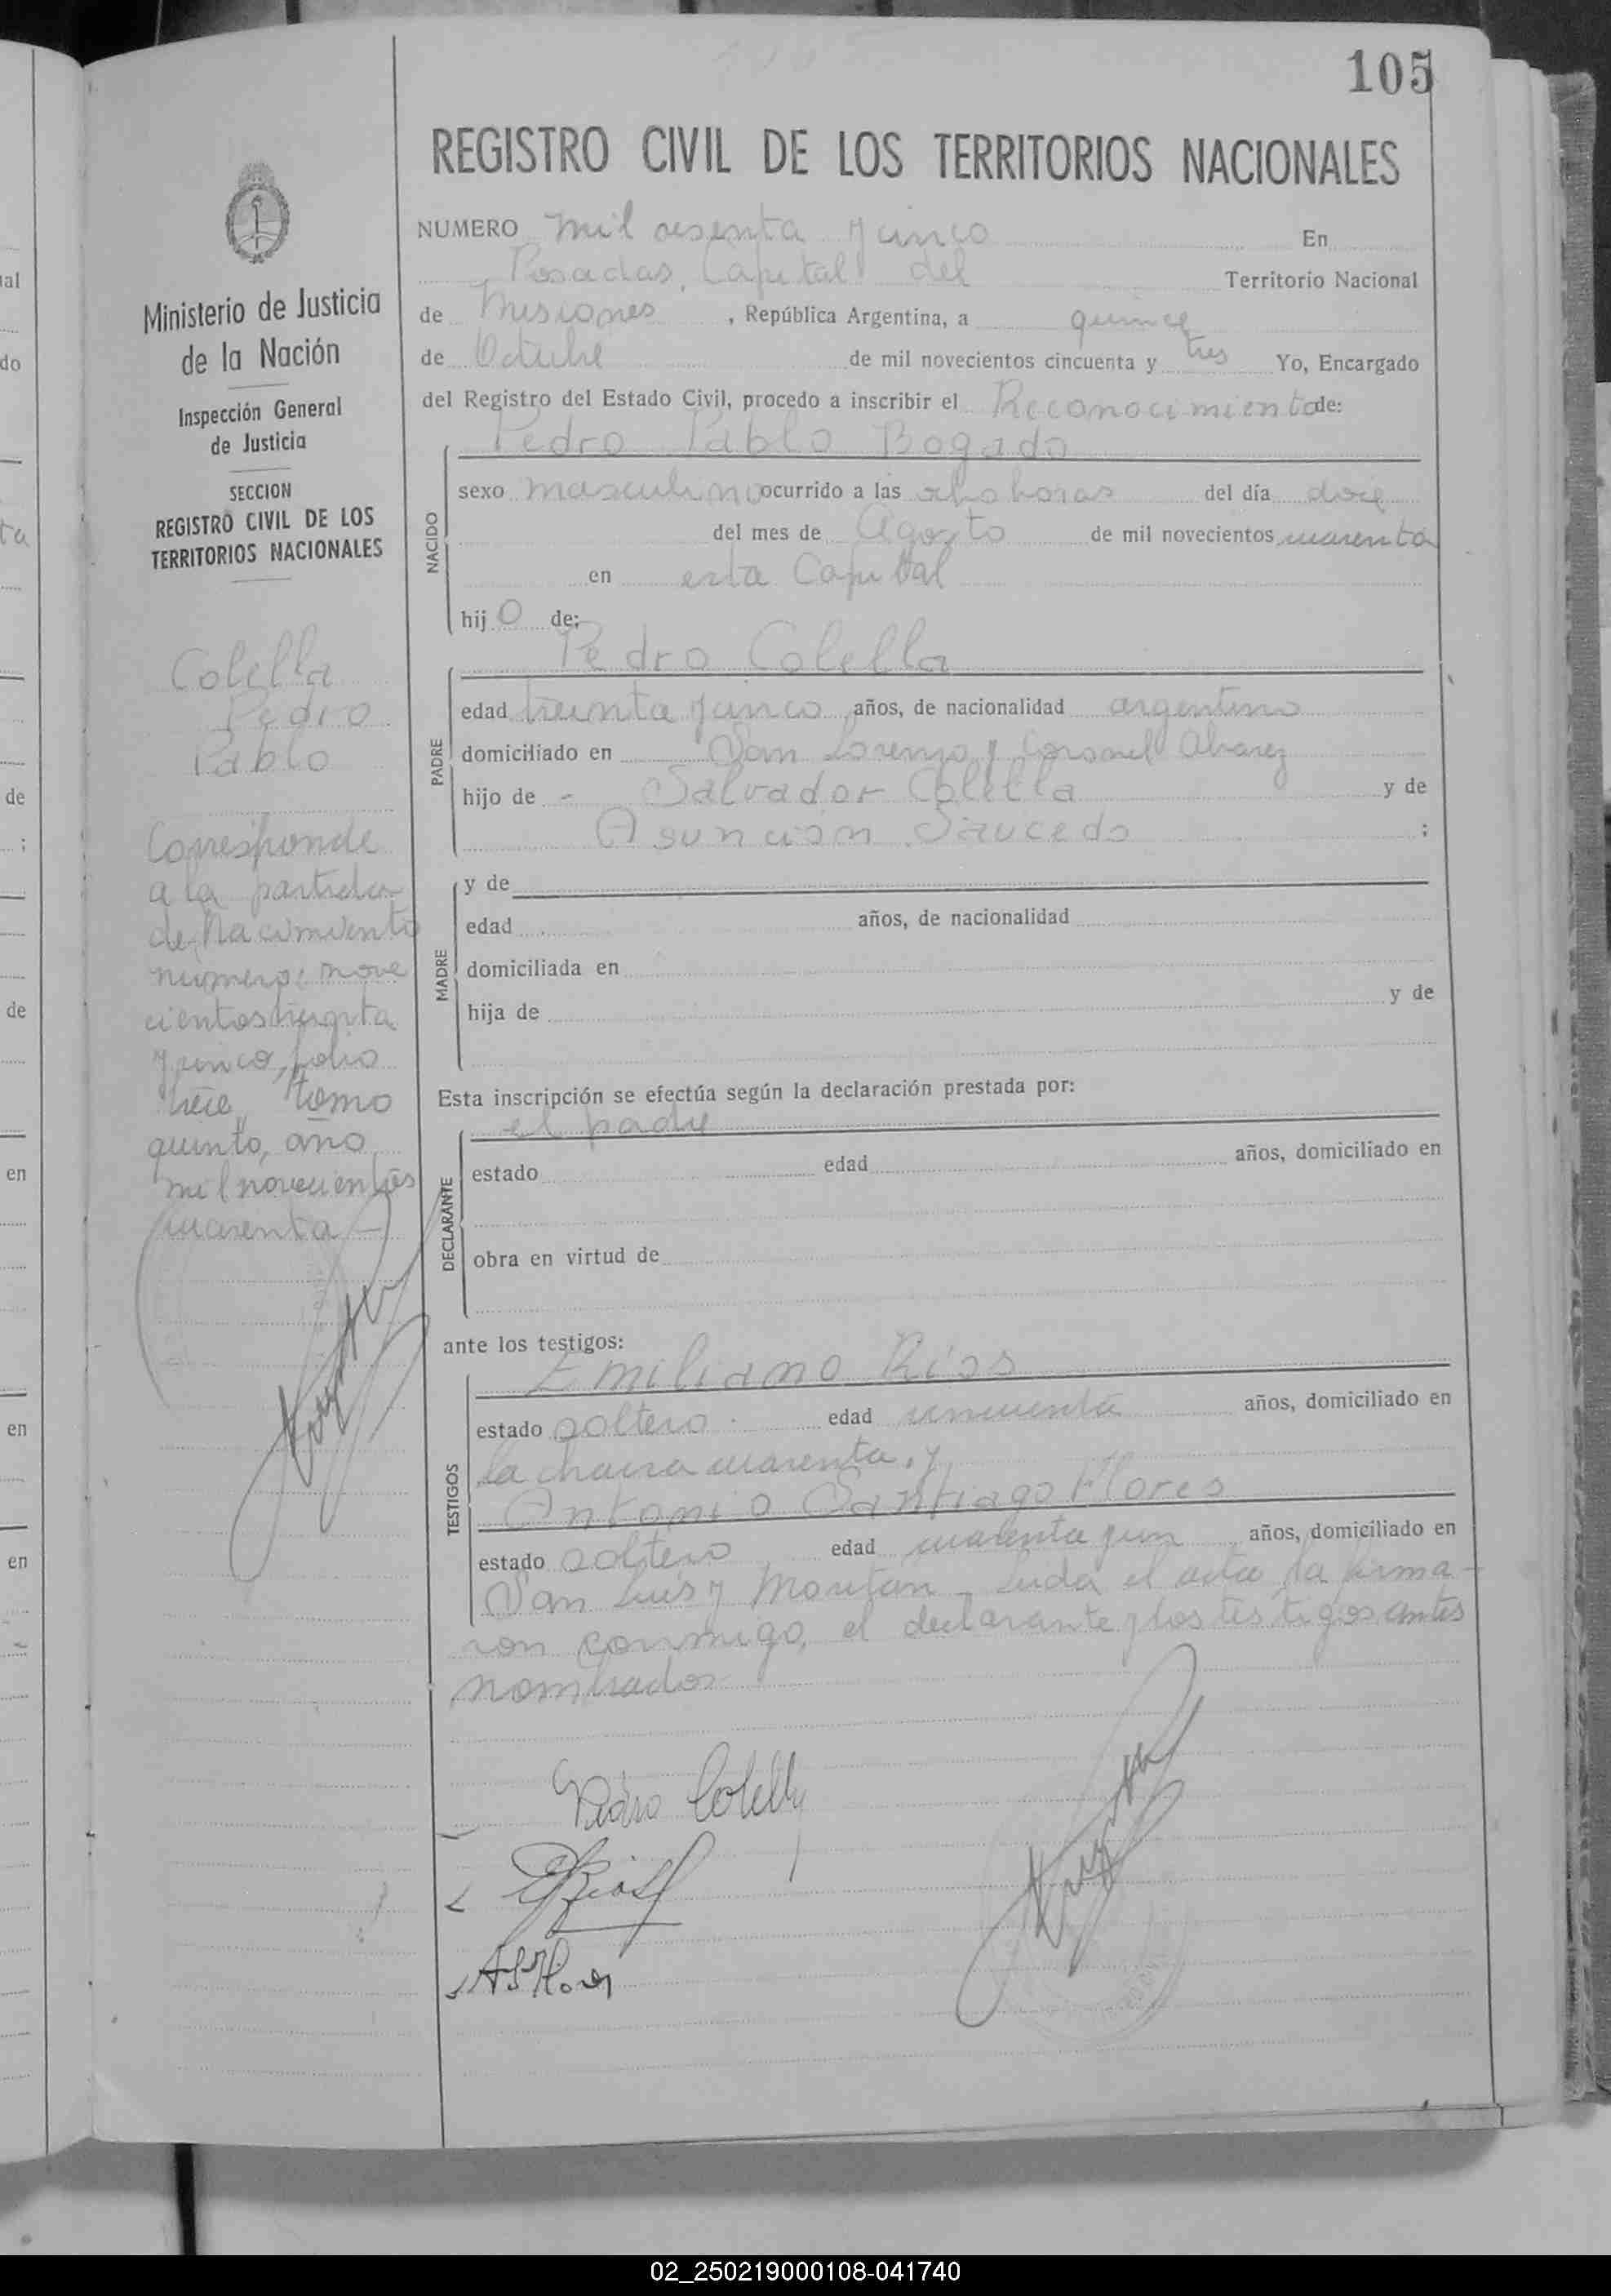 105
REGISTRO CIVIL DE LOS TERRITORIOS NACIONALES
NUMERO mil sesenta y cinco En
Posadas, Capital del Territorio Nacional
de Misiones, República Argentina, a quince
de Octubre de mil novecientos cincuenta y tres Yo, Encargado
del Registro del Estado Civil, procedo a inscribir el Reconocimiento de:
Pedro Pablo Bogado
NACIDO
sexo masculino ocurrido a las ocho horas del día doce
del mes de Agosto de mil novecientos cuarenta
en esta Capital
hijo de:
Pedro Colella
PADRE
edad treinta y cinco años, de nacionalidad argentino
domiciliado en San Lorenzo y Coronel Alvarez
hijo de - Salvador Colella y de
Asunción Saucedo ;
MADRE
y de
edad años, de nacionalidad
domiciliada en
hija de y de
Esta inscripción se efectúa según la declaración prestada por:
el padre
DECLARANTE
estado edad años, domiciliado en
obra en virtud de
ante los testigos:
Emiliano Ríos
TESTIGOS
estado soltero edad cincuenta años, domiciliado en
la chacra cuarenta, y
Antonio Santiago Flores
estado soltero edad cuarenta y un años, domiciliado en
San Luis y - Leída el acta, la firma-
ron conmigo, el declarante y los testigos antes
nombrados
Pedro Colella
ERios
ASFlores
Ministerio de Justicia
de la Nación
Inspección General
de Justicia
SECCION
REGISTRO CIVIL DE LOS
TERRITORIOS NACIONALES
Colella
Pedro
Pablo
Corresponde
a la partida
de Nacimiento
numero: nove
cientos treinta
y cinco, folio
trece, tomo
quinto, año
mil novecientos
cuarenta -
al
do
ta
de
;
de
en
en
en
02_250219000108-041740